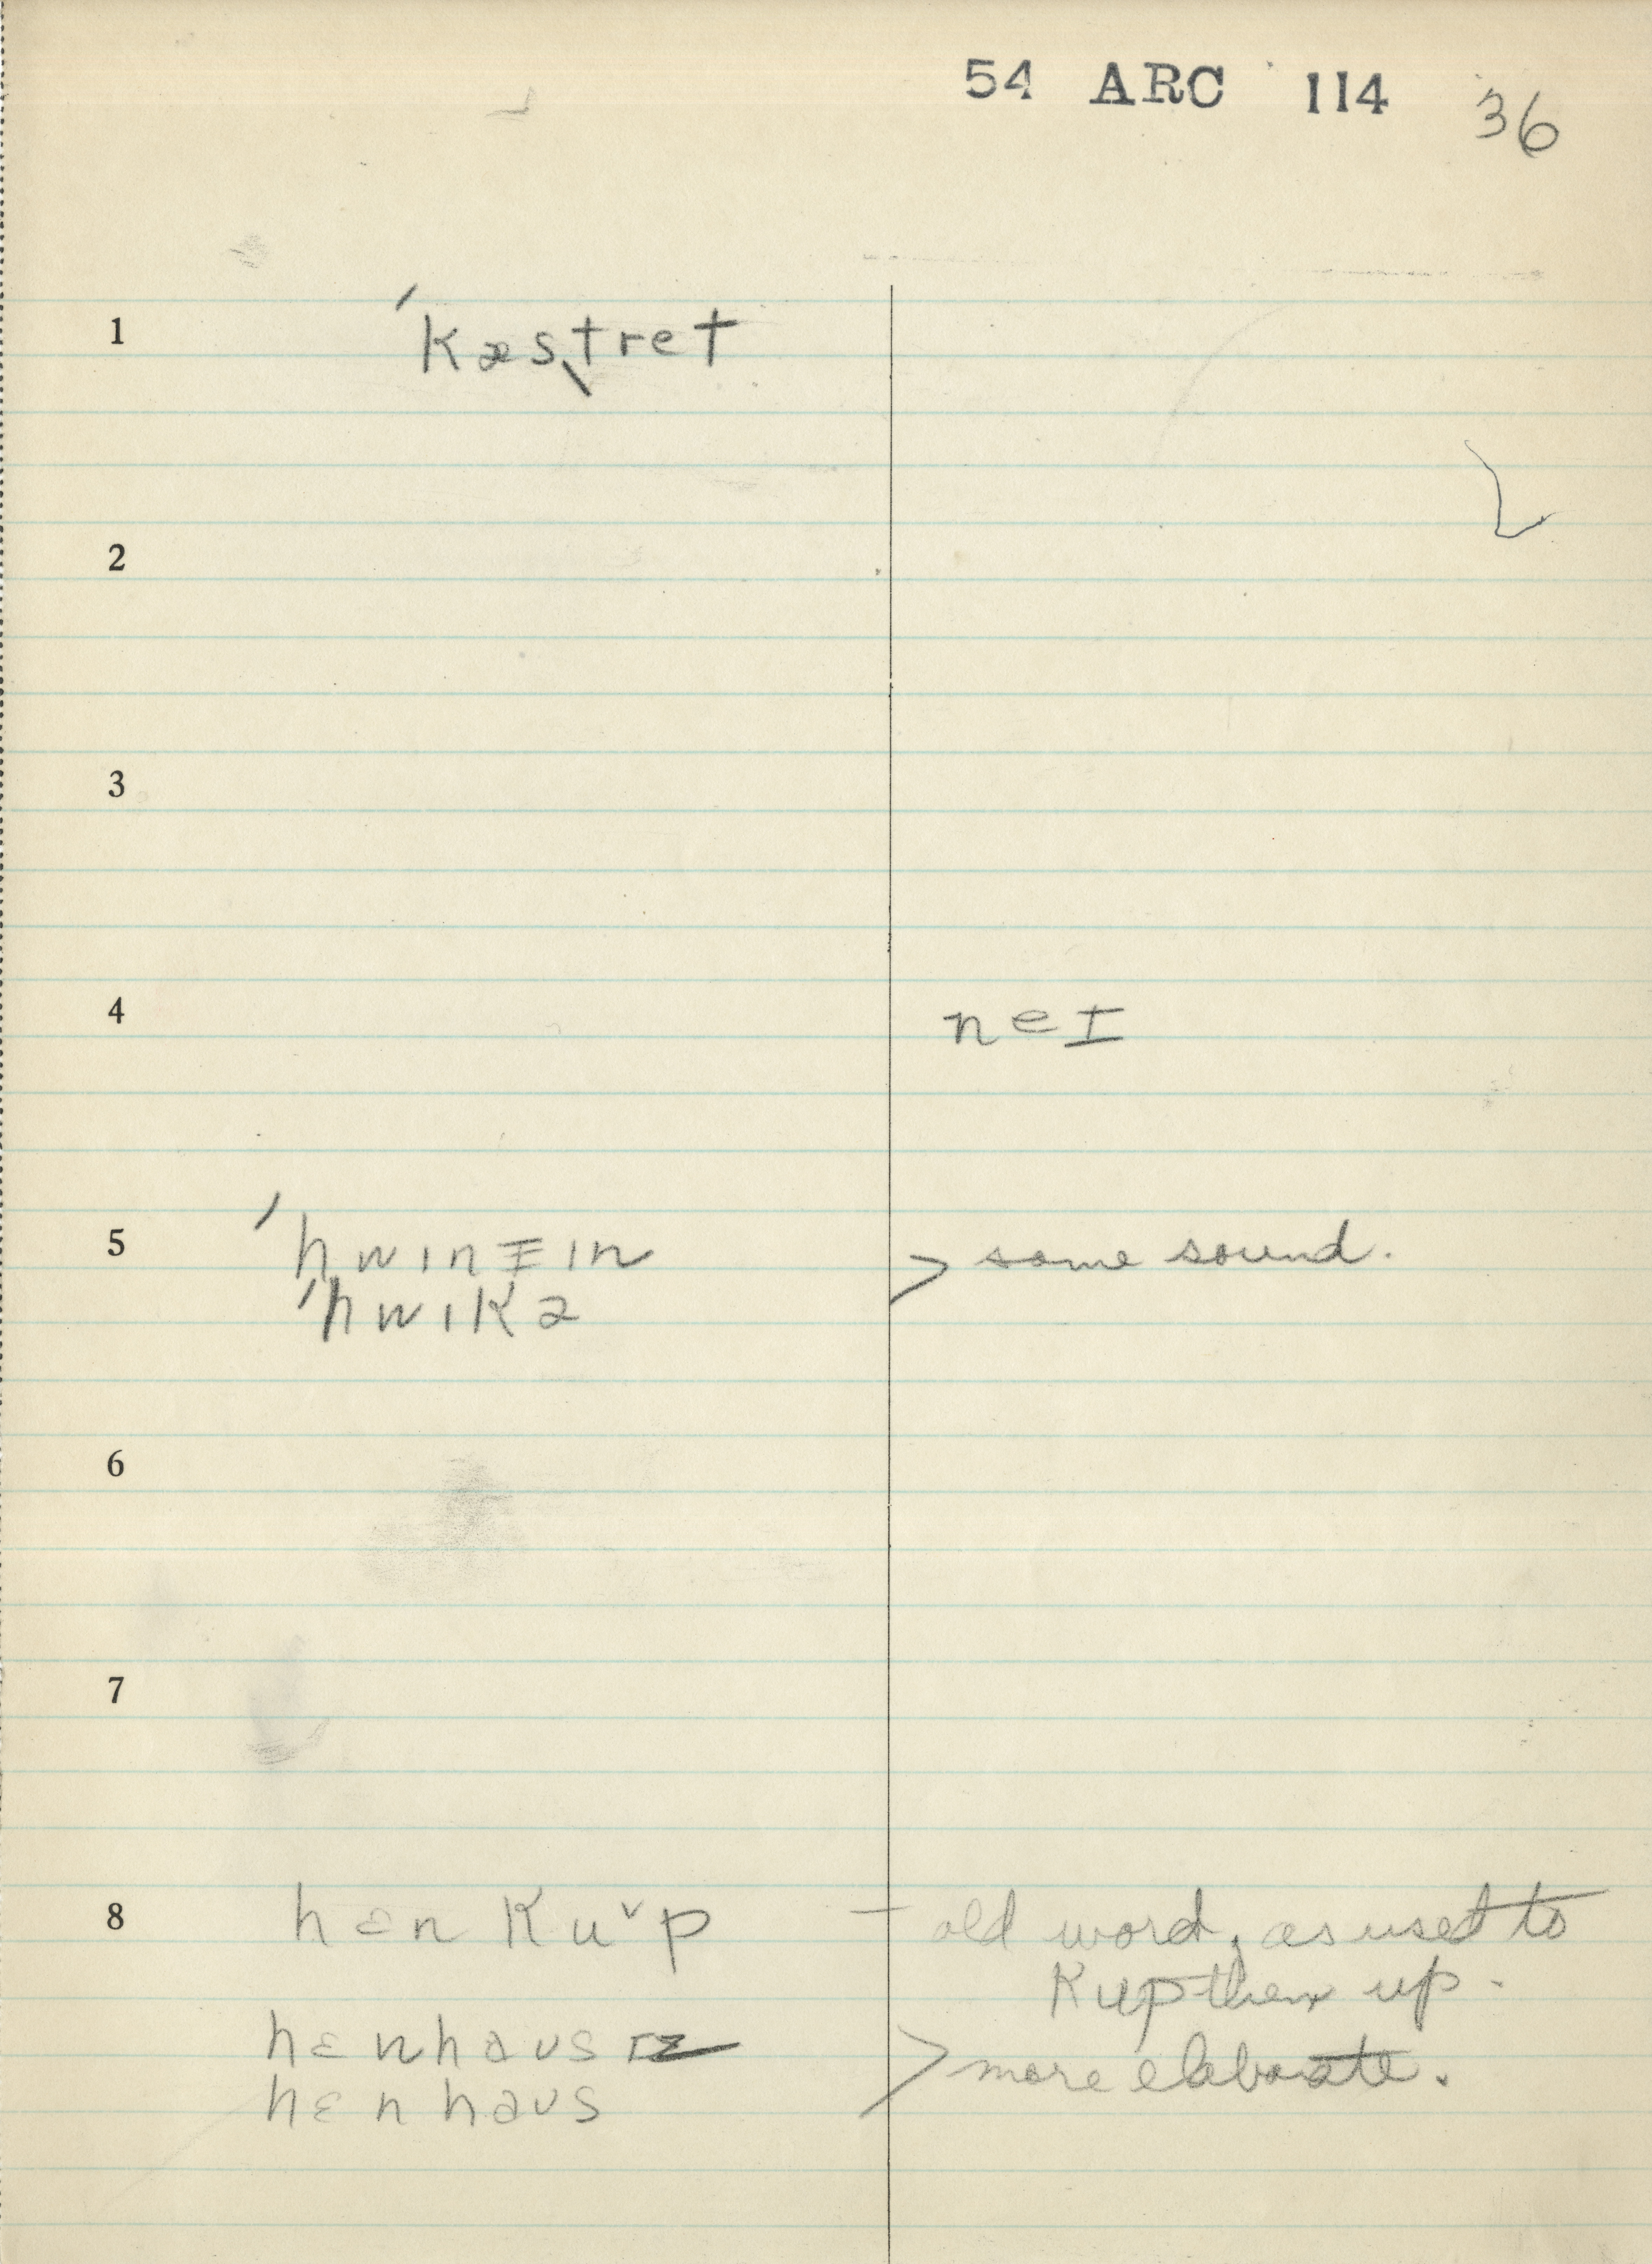 54 ARC 114 36
1 ˈkæsˌtret
2
3
4 neɪ
5 ˈhwɪnɪ̵ɪn > same sound.
ˈhwɪkə
6
7
8 hɛn kuˇp – old word, as used to
Kup them up.
hɛnhaus > more elaborate.
hɛnhaus